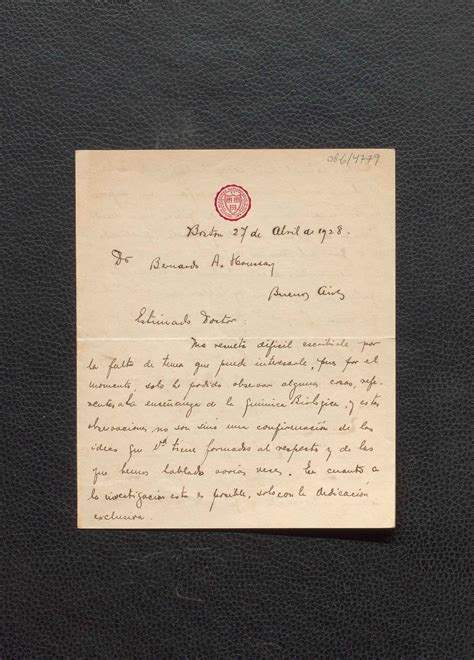 086/4779
Boston 27 de Abril de 1928.
Dr Bernardo A. Houssay
Buenos Aires
Estimado Doctor:
Me resulta dificil escribirle por
la falta de tema que puede interesarle, pues por el
momento, solo he podido observar algunas cosas, refe-
rentes a la enseñanza de la Quimica Biológica, y estas
observaciones no son sino una confirmación de las
ideas que Vd tiene formadas al respecto y de las
que hemos hablado varias veces. En cuanto a
la investigación esta es posible, solo con la dedicación
exclusiva.